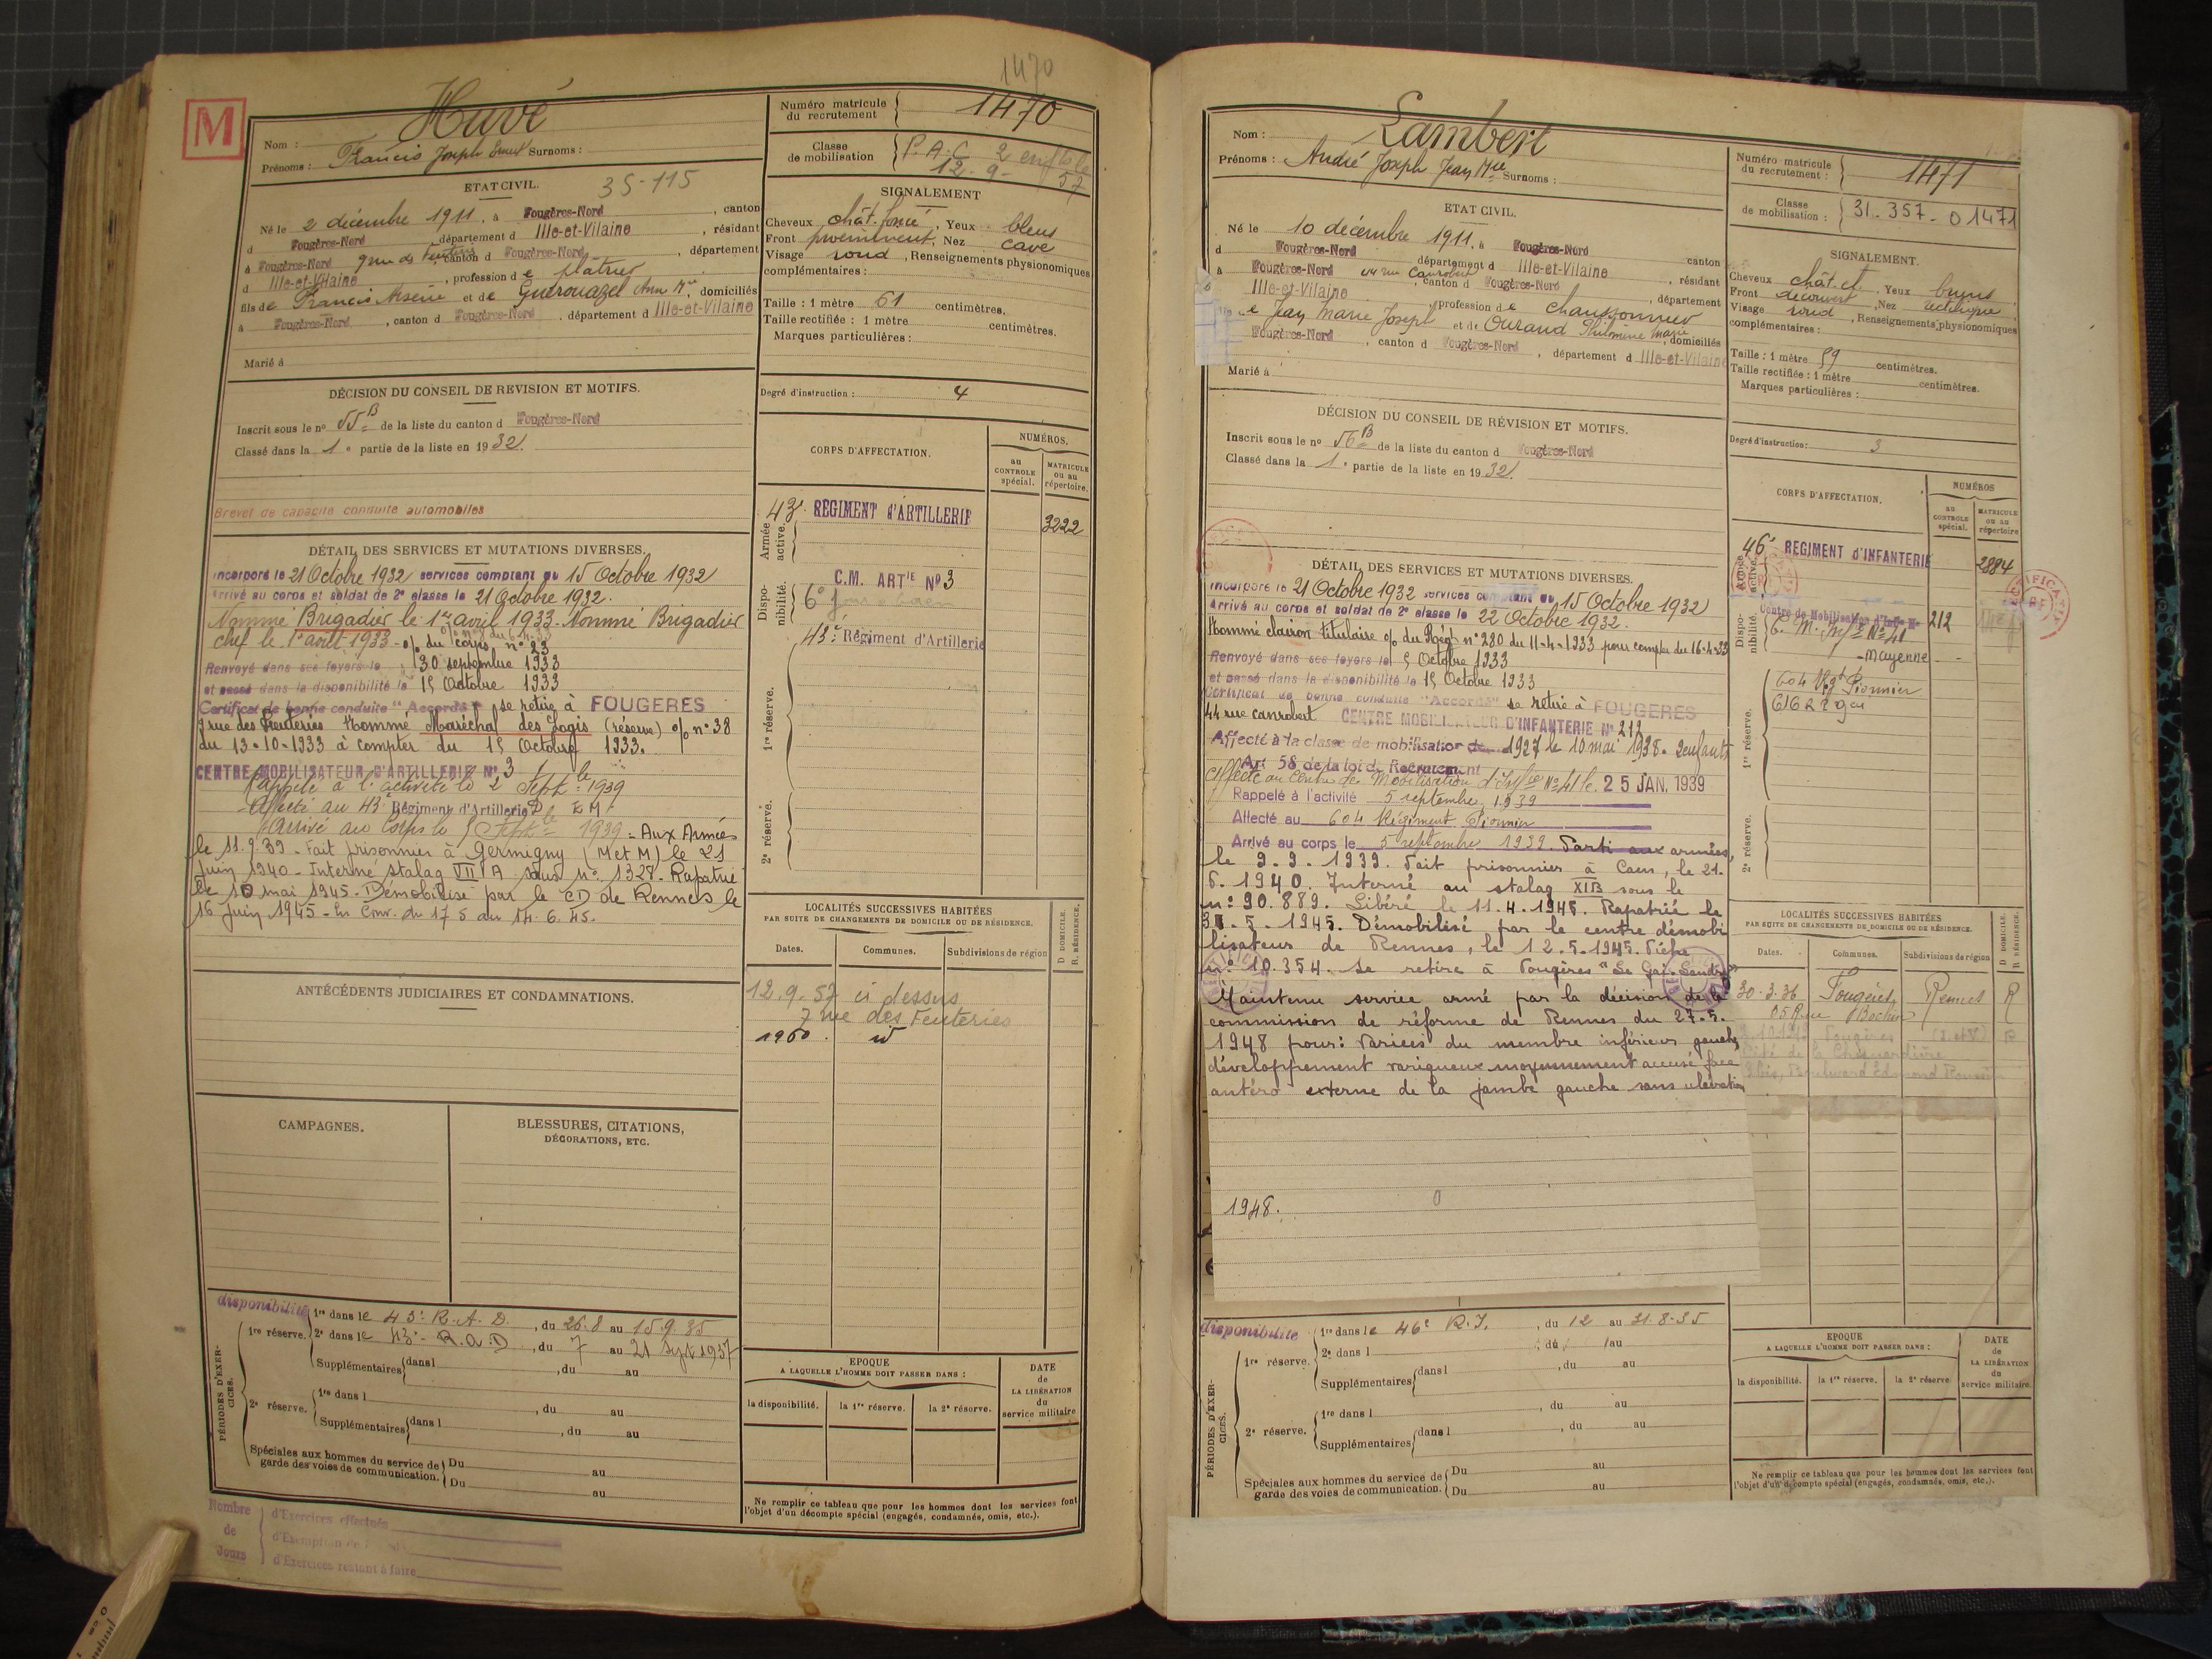 M
1470
Nom : Huvé
Prénoms : Francis Joseph Surnoms :
ETAT CIVIL. 35-115
Né le 2 décembre 1911, à Fougères-Nord, canton
d Fougères-Nord département d Ille-et-Vilaine, résidant
à Fougères-Nord 7 rue des canton d Fougères-Nord, département
d Ille-et-Vilaine, profession de plâtrier
fils de Francis Arsène et de Guérouazel Anna Mie, domiciliés
à Fougères-Nord, canton d Fougères-Nord, département d Ille-et-Vilaine
Marié à
DÉCISION DU CONSEIL DE REVISION ET MOTIFS.
Inscrit sous le no 55 B de la liste du canton d Fougères-Nord
Classé dans la 1e partie de la liste en 1932.
Brevet de capacité conduite automobiles
DÉTAIL DES SERVICES ET MUTATIONS DIVERSES.
Incorporé le 21 Octobre 1932 services comptant du 15 Octobre 1932
Arrivé au corps et soldat de 2e classe le 21 Octobre 1932.
Nommé Brigadier le 1er avril 1933. Nommé Brigadier
chef le 1er août 1933 - o/ du corps n° 23
Renvoyé dans ses foyers le 30 septembre 1933
et passé dans la disponibilité le 15 Octobre 1933
Certificat de bonne conduite "Accordé" se retire à FOUGERES
7 rue des Feuteries Nommé Maréchal des Logis (réserve) o/ n° 38
du 13-10-1933 à compter du 15 Octobre 1933.
CENTRE MOBILISATEUR D'ARTILLERIE N° 3
Rappelé à l'activité le 2 Septbre 1939
Affecté au 43e Régiment d'Artillerie D E M
Arrivé au Corps le 5 Septbre 1939 - Aux Armées
le 11.9.39 - Fait prisonnier à Germigny (M et M) le 21
Juin 1940 - Interné stalag VII A sous n° 1328 - Rapatrié
le 10 mai 1945 - Démobilisé par le CD de Rennes le
16 Juin 1945 - En Conv. du 17 5 au 14.6.45.
ANTÉCÉDENTS JUDICIAIRES ET CONDAMNATIONS.
CAMPAGNES.
BLESSURES, CITATIONS, DÉCORATIONS, ETC.
PÉRIODES D'EXERCICES.
disponibilité 1re dans le 43e R.A.D., du 26.8 au 15.9.35
1re réserve. 2e dans le 43e R.A.D, du 7 au 21 Sept 1937
Supplémentaires dans l , du au
2e réserve. 1re dans l , du au
Supplémentaires dans l , du au
Spéciales aux hommes du service de garde des voies de communication. Du au
Du au
Nombre de Jours
d'Exercices effectués
d'Exemption de
d'Exercices restant à faire
Numéro matricule du recrutement 1470
Classe de mobilisation P.A.C. 2 enfts le
12-9-57
SIGNALEMENT
Cheveux chât. foncé, Yeux bleus
Front proéminent, Nez cave
Visage rond, Renseignements physionomiques
complémentaires :
Taille : 1 mètre 61 centimètres.
Taille rectifiée : 1 mètre centimètres.
Marques particulières :
Degré d'instruction : 4
CORPS D'AFFECTATION.
NUMÉROS.
au CONTROLE spécial.
MATRICULE ou au répertoire.
Armée active. 43e RÉGIMENT d'ARTILLERIE 3222
Disponibilité. C.M. ARTIE N° 3
43e Régiment d'Artillerie
1re réserve.
2e réserve.
LOCALITÉS SUCCESSIVES HABITÉES
PAR SUITE DE CHANGEMENTS DE DOMICILE OU DE RÉSIDENCE.
Dates. Communes. Subdivisions de région D. DOMICILE. R. RÉSIDENCE.
12.9.57 ci dessus
7 rue des Feuteries
1960.
EPOQUE
A LAQUELLE L'HOMME DOIT PASSER DANS :
la disponibilité. la 1re réserve. la 2e réserve.
DATE de LA LIBÉRATION du service militaire
Ne remplir ce tableau que pour les hommes dont les services font
l'objet d'un décompte spécial (engagés, condamnés, omis, etc.).
Nom : Lambert
Prénoms : André Joseph Jean Mie Surnoms :
ETAT CIVIL.
Né le 10 décembre 1911, à Fougères-Nord
d Fougères-Nord département d Ille-et-Vilaine canton
à Fougères-Nord 44 rue Canrobert, canton d Fougères-Nord, résidant
Ille-et-Vilaine, profession de chaussonnier, département
e Jean Marie Joseph et de Durand Philomène Marie, domiciliés
Fougères-Nord, canton d Fougères-Nord, département d Ille-et-Vilaine
Marié à
DÉCISION DU CONSEIL DE RÉVISION ET MOTIFS.
Inscrit sous le no 56 B de la liste du canton d Fougères-Nord
Classé dans la 1e partie de la liste en 1932.
DÉTAIL DES SERVICES ET MUTATIONS DIVERSES.
Incorporé le 21 Octobre 1932 services comptant du 15 Octobre 1932
Arrivé au corps et soldat de 2e classe le 22 Octobre 1932.
Nommé clairon titulaire o/ du Régt n° 280 du 11-4-1933 pour compter du 16-4-33
Renvoyé dans ses foyers le 5 Octobre 1933
et passé dans la disponibilité le 15 Octobre 1933
Certificat de bonne conduite "Accordé" se retire à FOUGERES
44 rue Canrobert CENTRE MOBILISATEUR D'INFANTERIE N° 212
Affecté à la classe de mobilisation de 1927 le 10 mai 1938. 2 enfants
Art 58 de la loi de Recrutement
Affecté au Centre de Mobilisation d'Inftie N° 41 le 25 JAN. 1939
Rappelé à l'activité 5 septembre 1939
Affecté au 604 Régiment Pionnier
Arrivé au corps le 5 septembre 1939. Parti aux armées,
le 9.9.1939. Fait prisonnier à Caen, le 21.
6.1940. Interné au stalag XIB sous le
n° 90.889. Libéré le 11.4.1945. Rapatrié le
5.1945. Démobilisé par le centre démobi
lisateur de Rennes, le 12.5.1945. Fiche
n° 10.354. Se retire à Fougères "Le Gai
Maintenu service armé par la décision de la
commission de réforme de Rennes du 27.5.
1948 pour: varices du membre inférieur gauche,
développement variqueux moyennement accusé face
antéro externe de la jambe gauche sans ulcération
1948.
PÉRIODES D'EXERCICES.
disponibilité 1re dans le 46e R.I., du 12 au 31-8-35
1re réserve. 2e dans l , du au
Supplémentaires dans l , du au
2e réserve. 1re dans l , du au
Supplémentaires dans l , du au
Spéciales aux hommes du service de garde des voies de communication. Du au
Du au
Numéro matricule du recrutement : 1471
Classe de mobilisation : 31-357-01471
SIGNALEMENT.
Cheveux chât. Yeux bruns
Front découvert, Nez rectiligne
Visage rond, Renseignements physionomiques
complémentaires :
Taille : 1 mètre 59 centimètres.
Taille rectifiée : 1 mètre centimètres.
Marques particulières :
Degré d'instruction : 3
CORPS D'AFFECTATION.
NUMÉROS
au CONTROLE spécial.
MATRICULE ou au répertoire
Armée active. 46e RÉGIMENT d'INFANTERIE 2884
Disponibilité. Centre de Mobilisation d'Inftie N° 212
C.M. Inftie N° 41
Mayenne
1re réserve. 604 Rgt Pionnier
2e réserve.
LOCALITÉS SUCCESSIVES HABITÉES
PAR SUITE DE CHANGEMENTS DE DOMICILE OU DE RÉSIDENCE.
Dates. Communes. Subdivisions de région D DOMICILE. R RÉSIDENCE.
30-3-36 Fougères Rennes R
EPOQUE
A LAQUELLE L'HOMME DOIT PASSER DANS :
la disponibilité. la 1re réserve. la 2e réserve
DATE de LA LIBÉRATION du service militaire.
Ne remplir ce tableau que pour les hommes dont les services font
l'objet d'un décompte spécial (engagés, condamnés, omis, etc.).